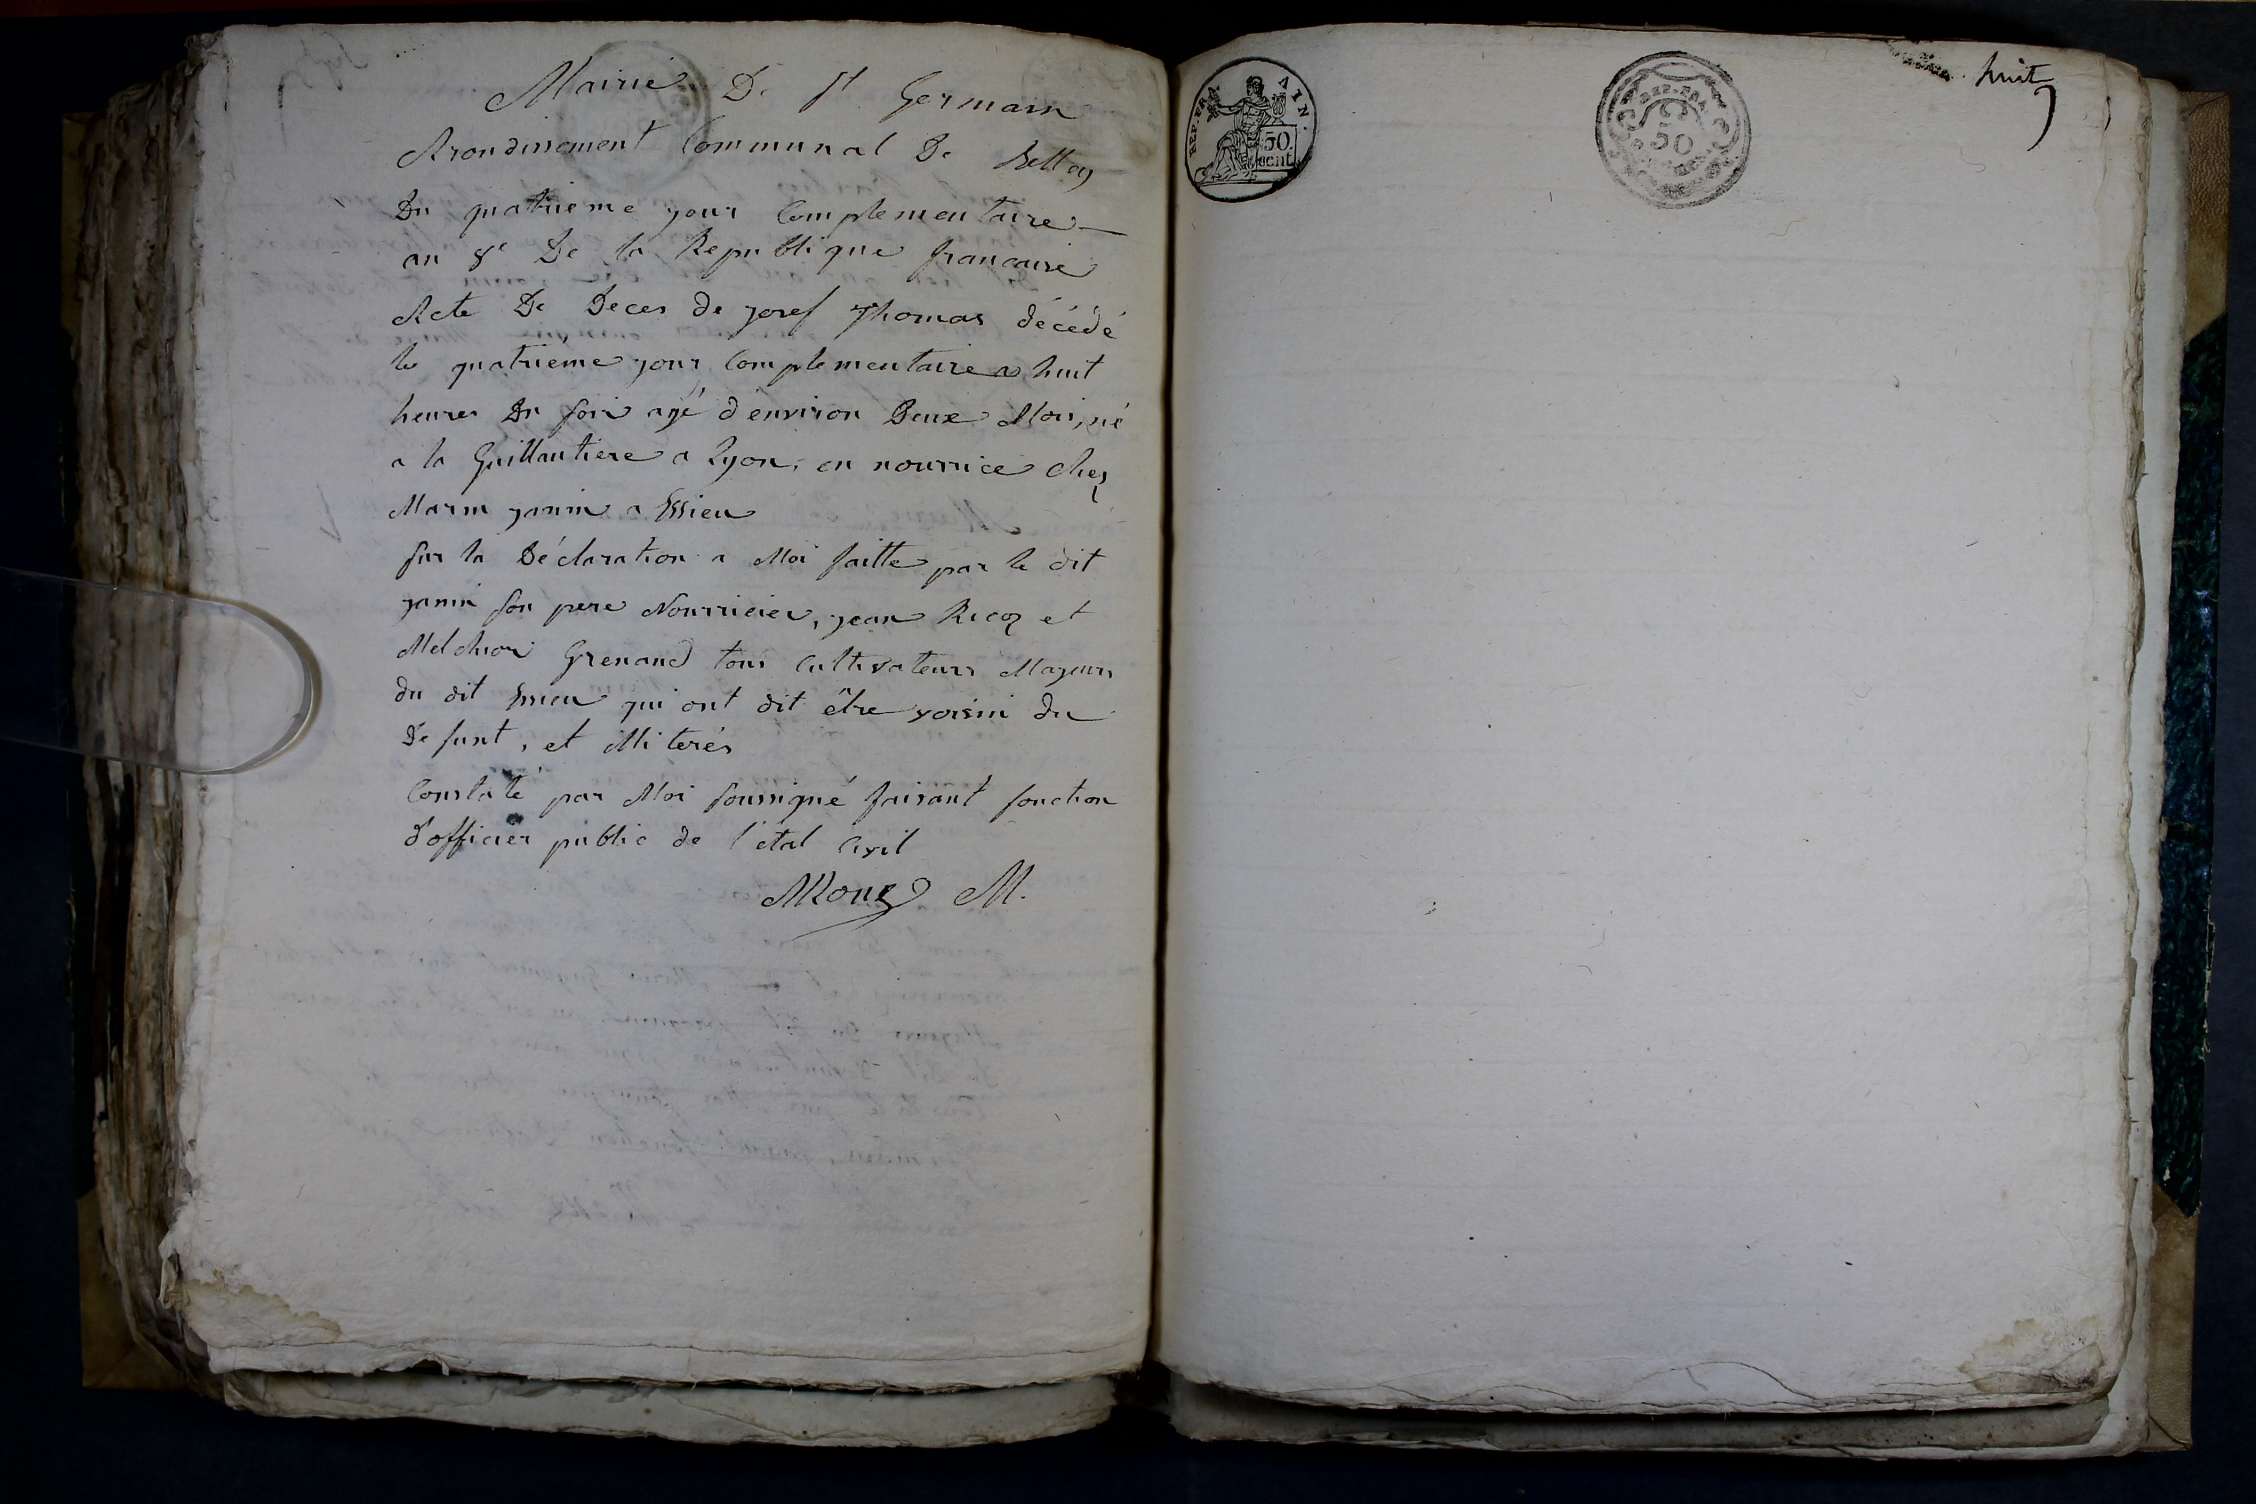 Mairie De St Germain
Arondissement Communal De Belley
Du quatrieme jour Complementaire
an 8e De la Republique francaise
Acte De Deces de josef Thomas décédé
le quatrieme jour Complementaire a huit
heures Du soir agé d'environ Deux Mois, né
a la Guillautiere a Lyon, en nourrice chez
Marin janin a Essieu
sur la Déclaration a Moi faitte par le dit
janin son pere Nourricier, jean Ricoz et
Melchior Grenand tous cultivateurs Majeurs
du dit Essieu qui ont dit être voisin du
Defunt, et illiterés
Constaté par Moi soussigné faisant fonction
d'officier public de l'état Civil
M.
REP. FRA AIN.
50. cent.
REP. FRA
50
huit